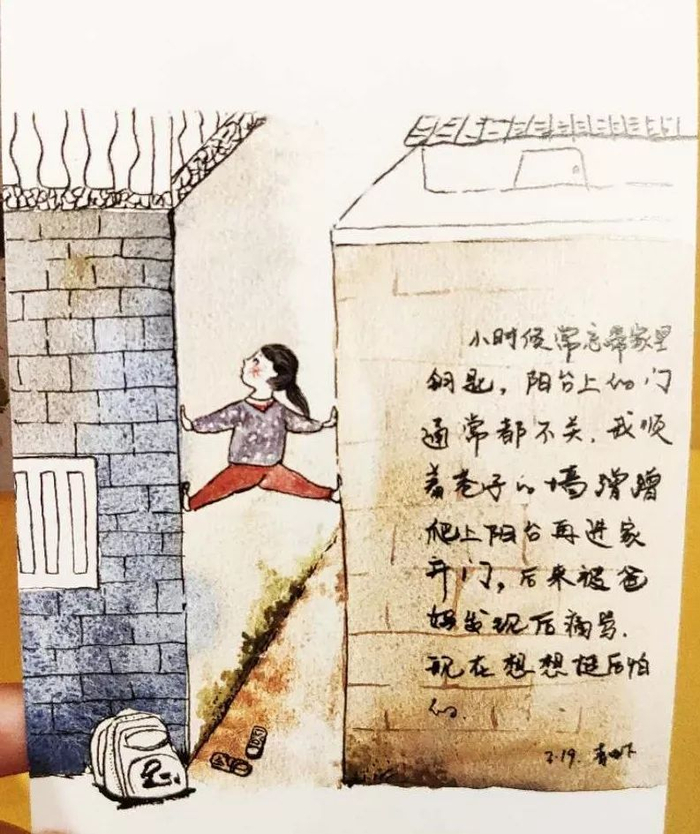 小时候常忘带家里
钥匙，阳台上的门
通常都不关，我顺
着巷子的墙蹭蹭
爬上阳台再进家
开门，后来被爸
妈发现后痛骂．
现在想想挺后怕
的．
2.19.